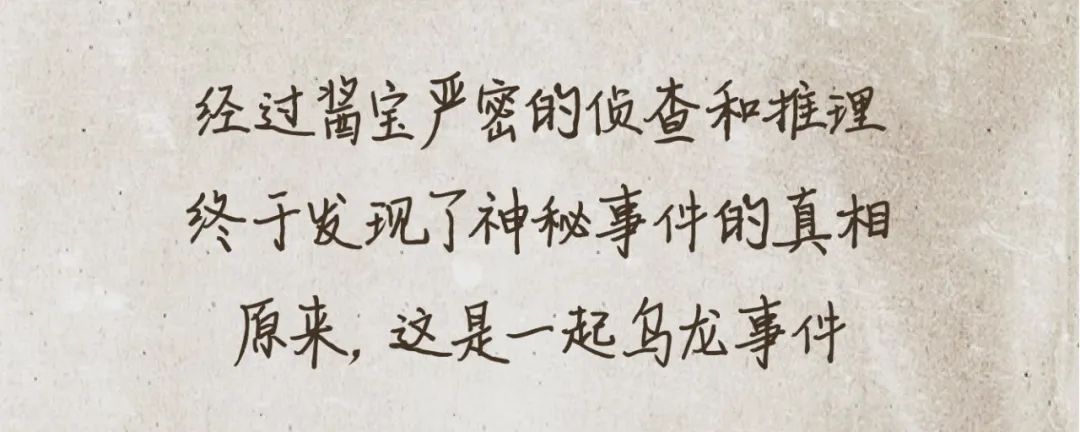 经过酱宝严密的侦查和推理
终于发现了神秘事件的真相
原来，这是一起乌龙事件